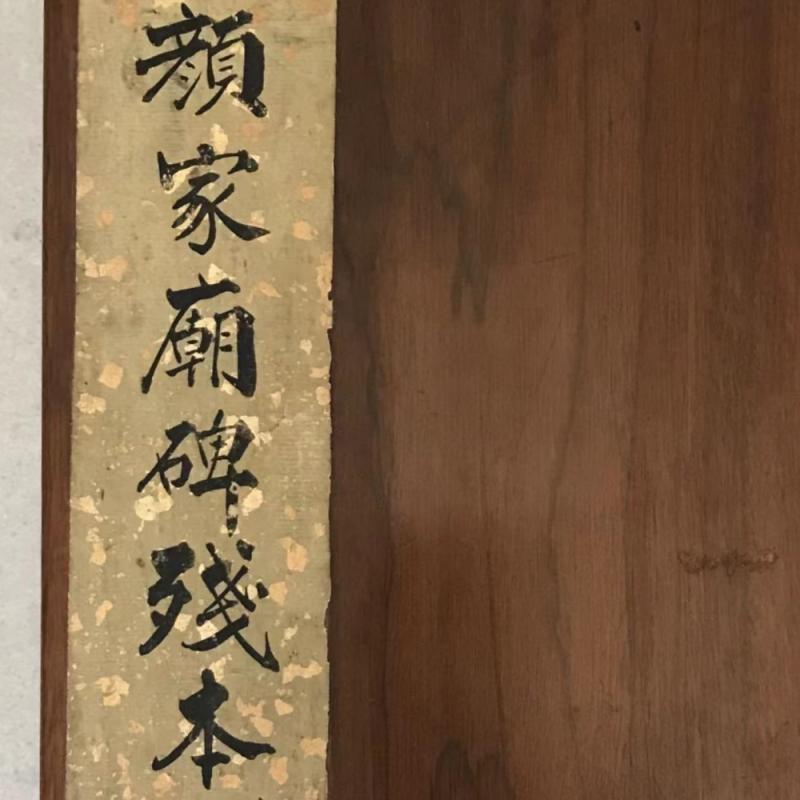 顔家廟碑殘本